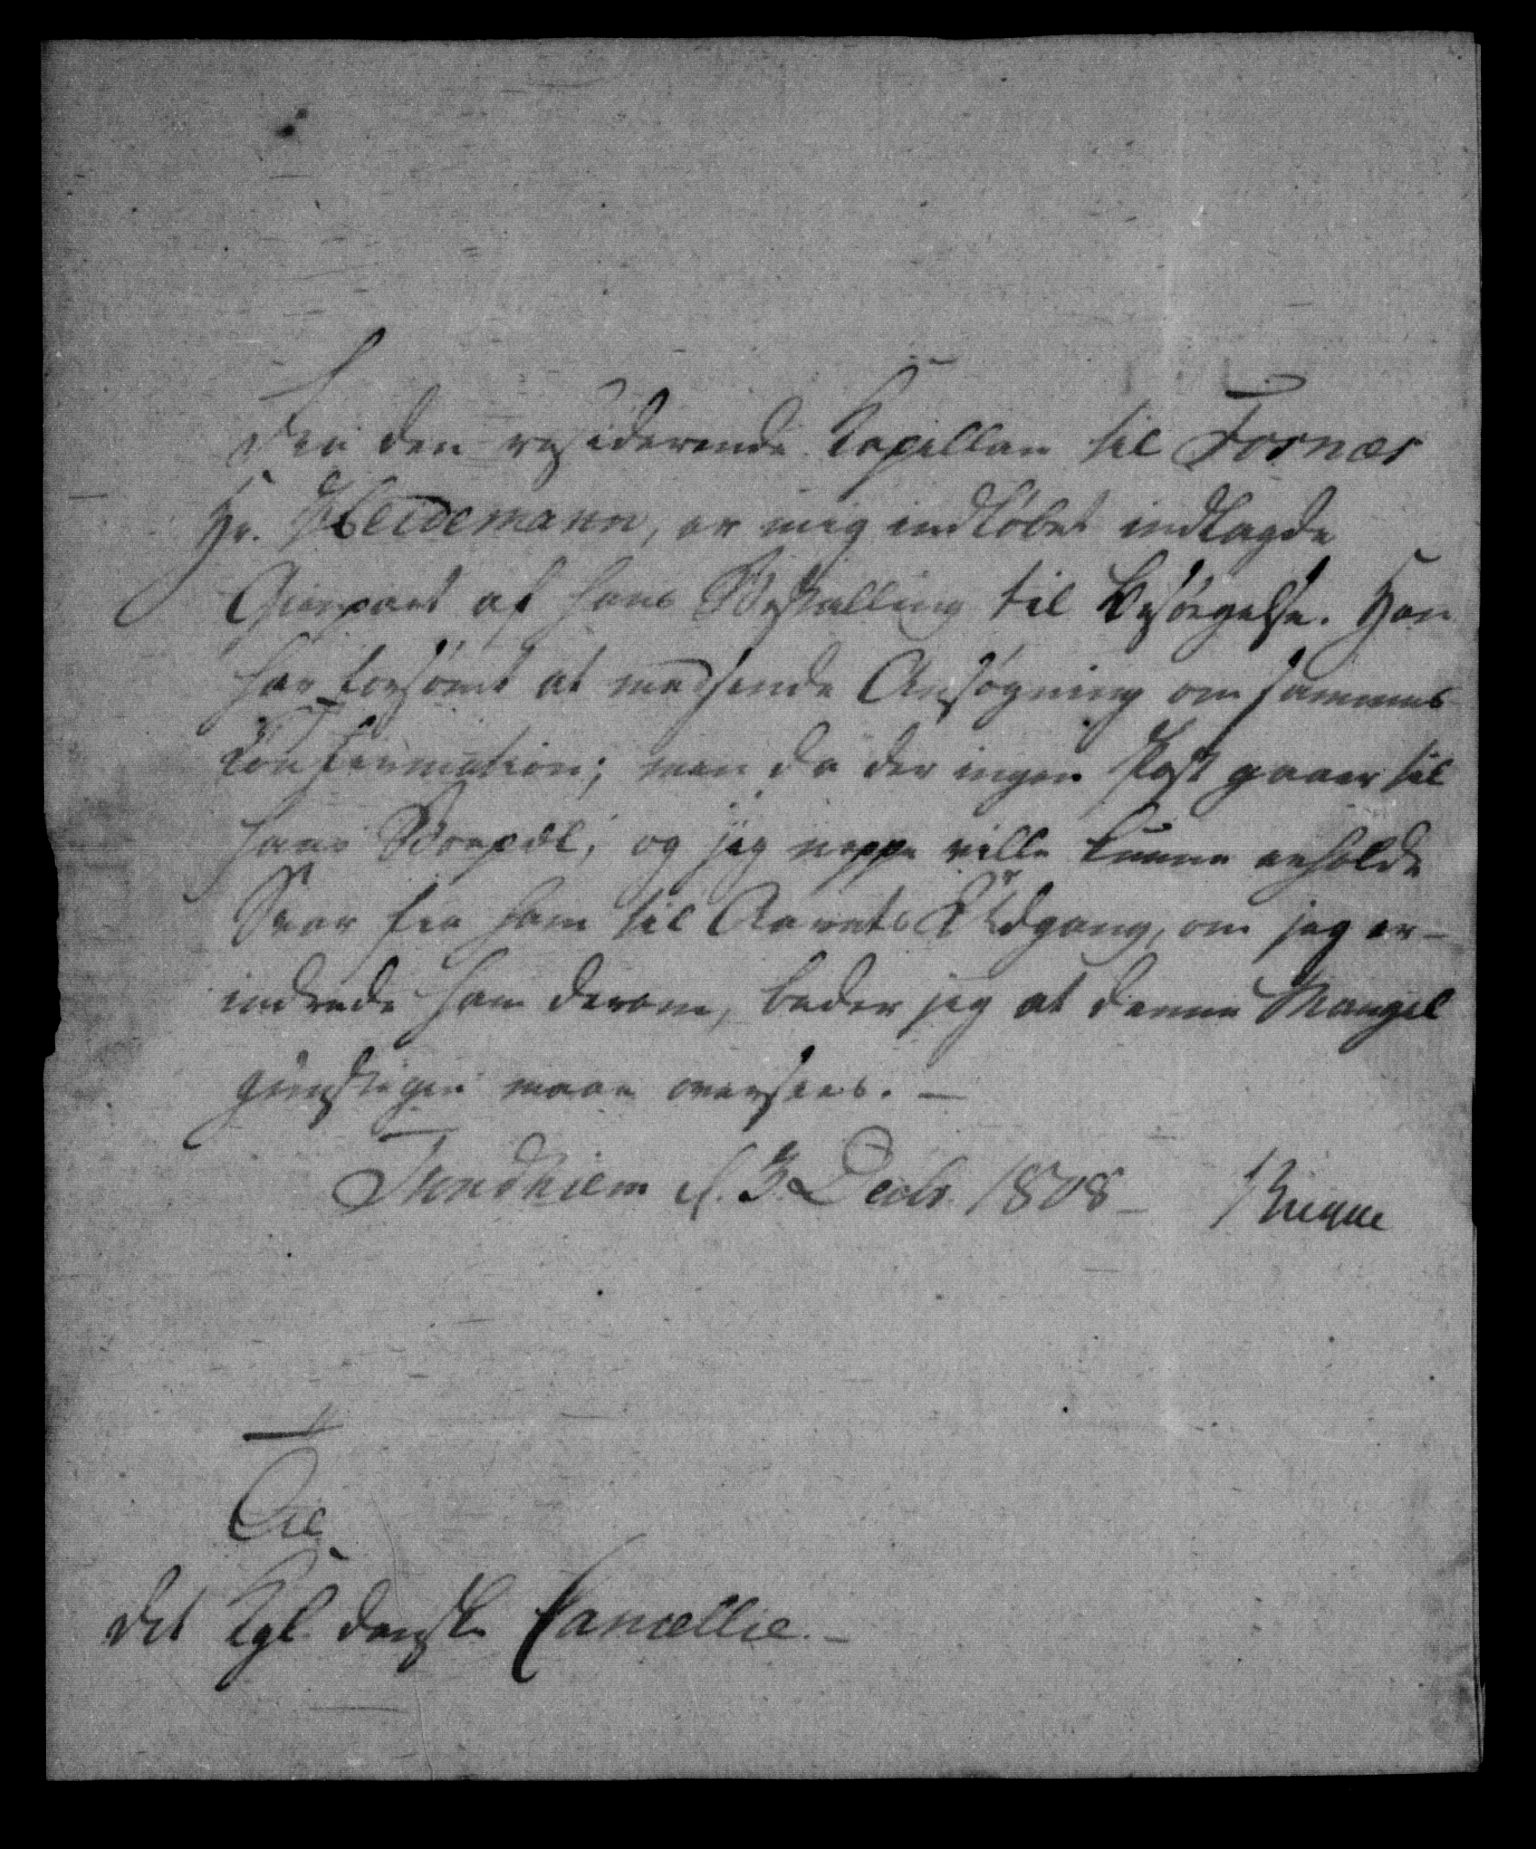 Fra den residerende Kapellan til Fosnæs
Hr. Heidemann, er mig indløbet indlagde
Gienpart af hans Bestalling til Besørgelse. Han
har forsømt at medsende Ansøgning om sammes
Confirmation; men da der ingen Post gaaer til
hans Boepæl, og jeg neppe ville kunne erholde
Svar fra ham til Aarets Udgang, om jeg er-
indrede ham derom, beder jeg at denne Mangel
gunstigen maae oversees. —
Trondhiem d. 3 Decbr. 1808 — Bugge
Til
det Kgl. danske Cancellie. —